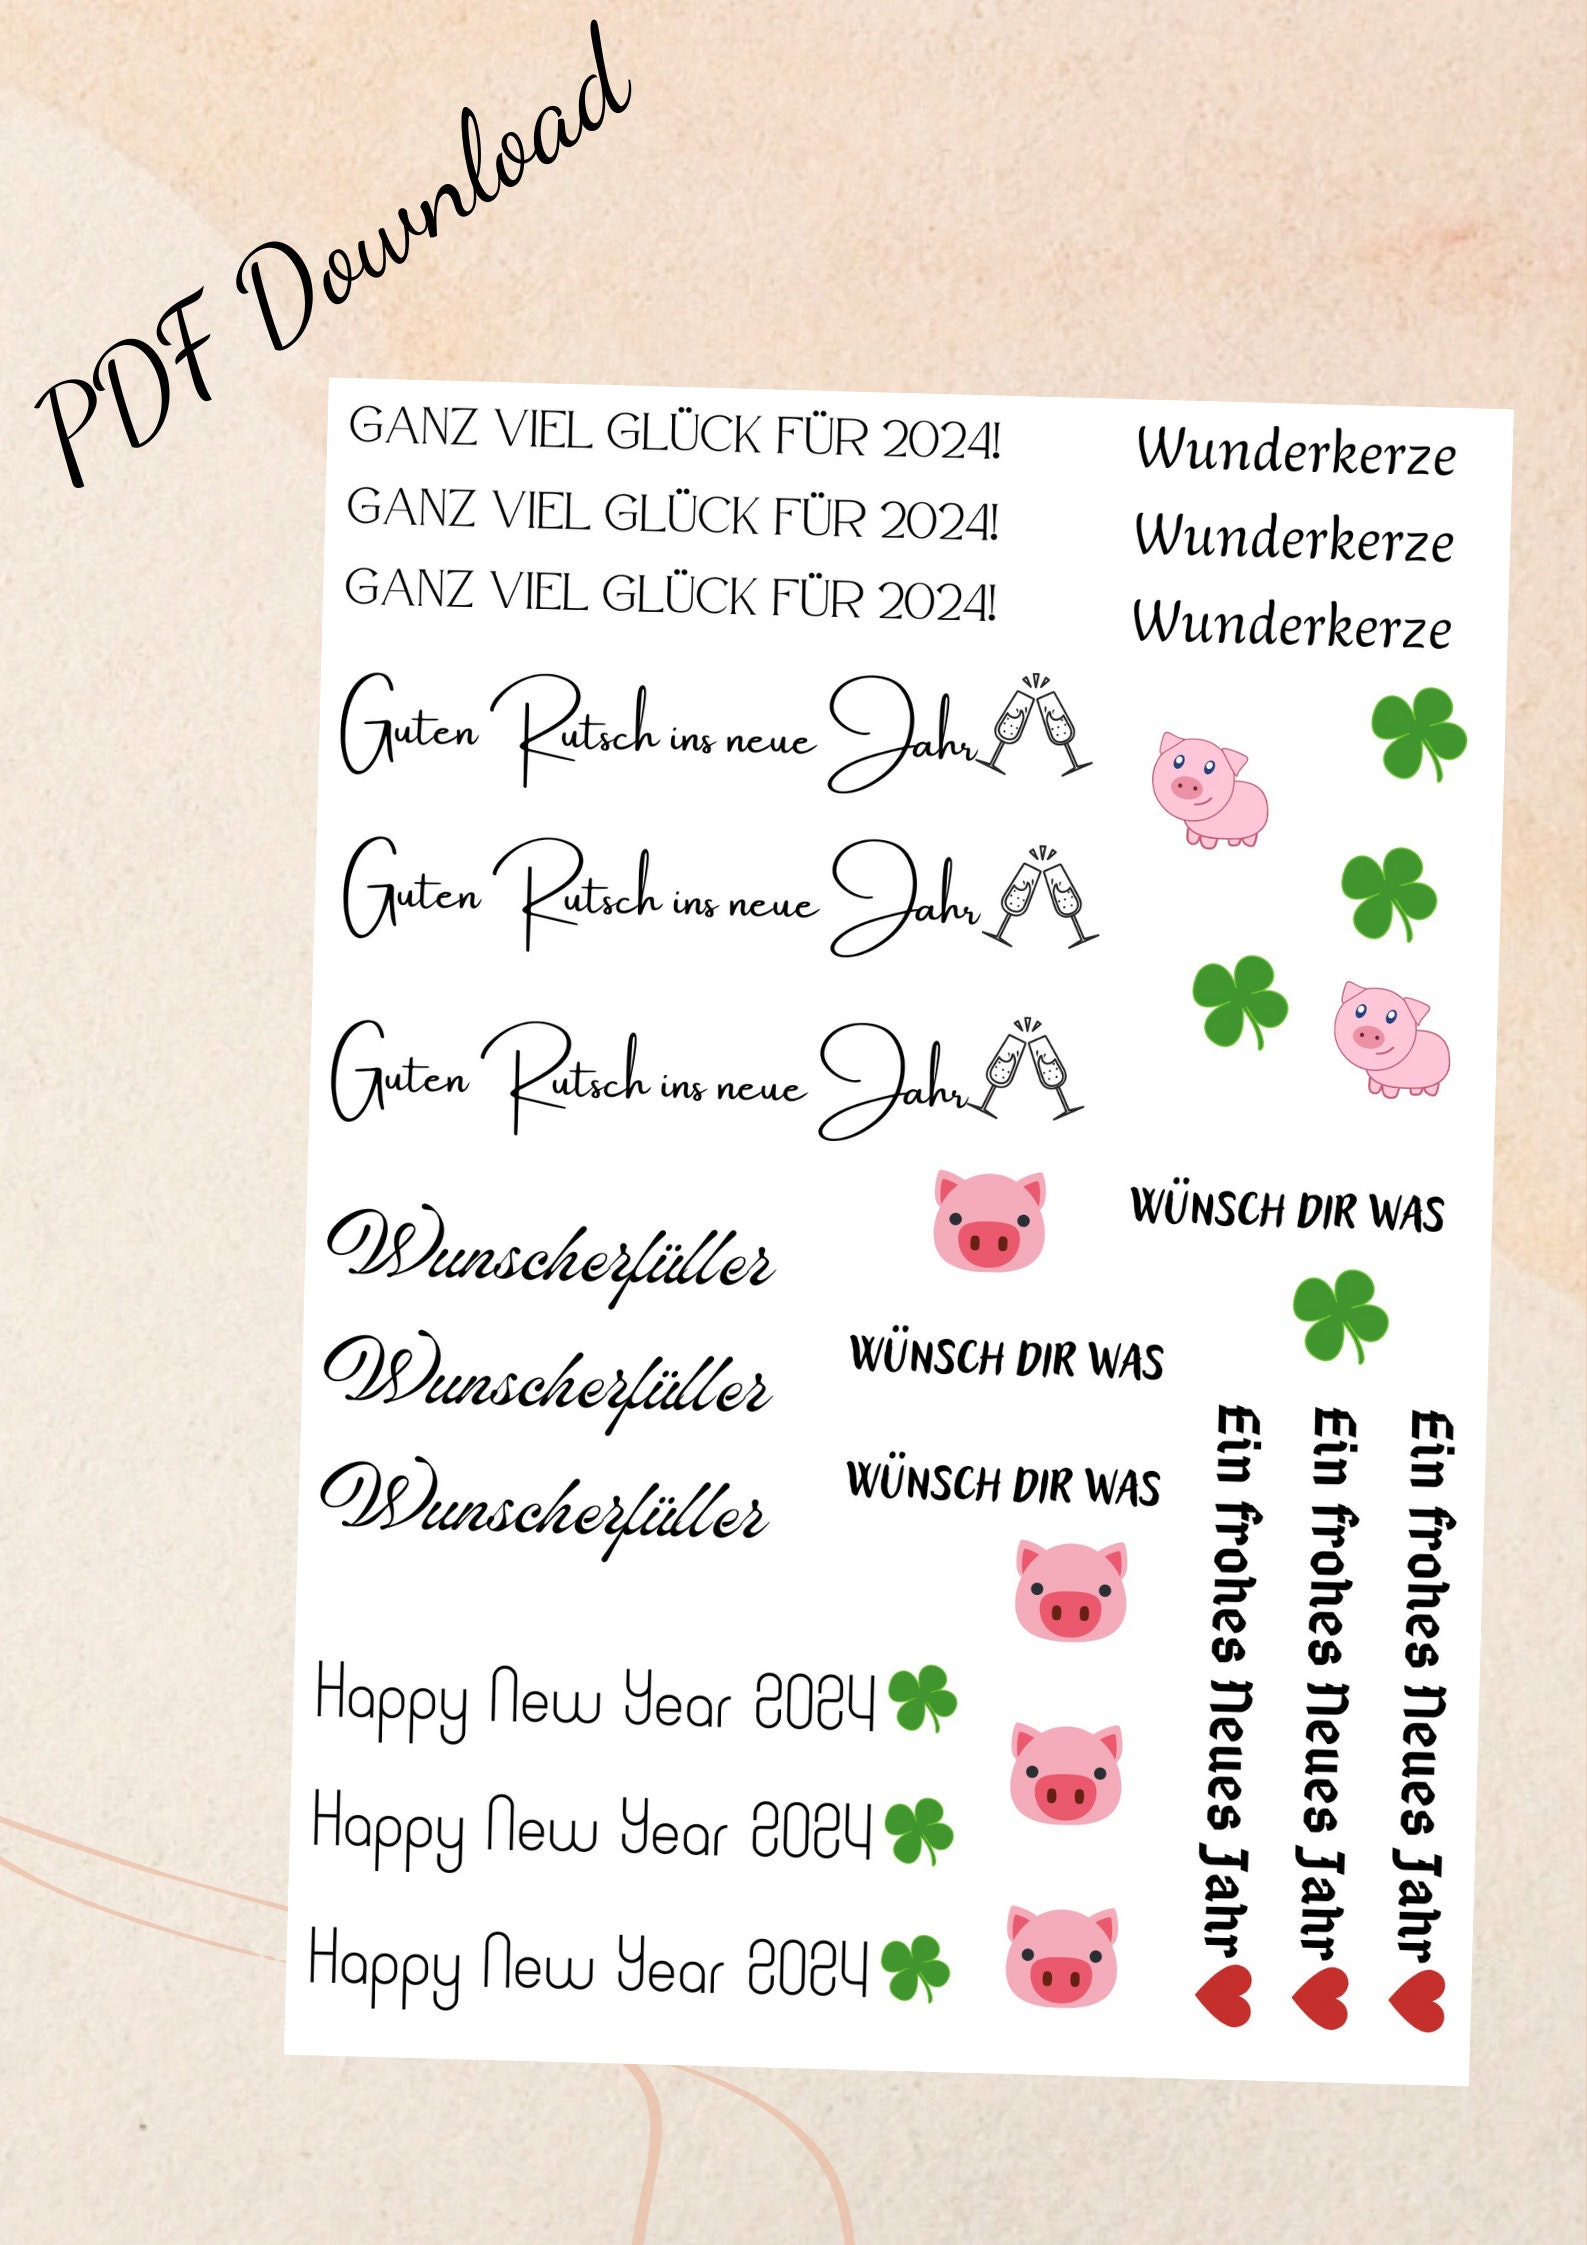 PDF Download
GANZ VIEL GLÜCK FÜR 2024!
GANZ VIEL GLÜCK FÜR 2024!
GANZ VIEL GLÜCK FÜR 2024!
Wunderkerze
Wunderkerze
Wunderkerze
Guten Rutsch ins neue Jahr
Guten Rutsch ins neue Jahr
Guten Rutsch ins neue Jahr
Wunscherfüller
Wunscherfüller
Wunscherfüller
WÜNSCH DIR WAS
WÜNSCH DIR WAS
WÜNSCH DIR WAS
Happy New Year 2024
Happy New Year 2024
Happy New Year 2024
Ein frohes Neues Jahr
Ein frohes Neues Jahr
Ein frohes Neues Jahr